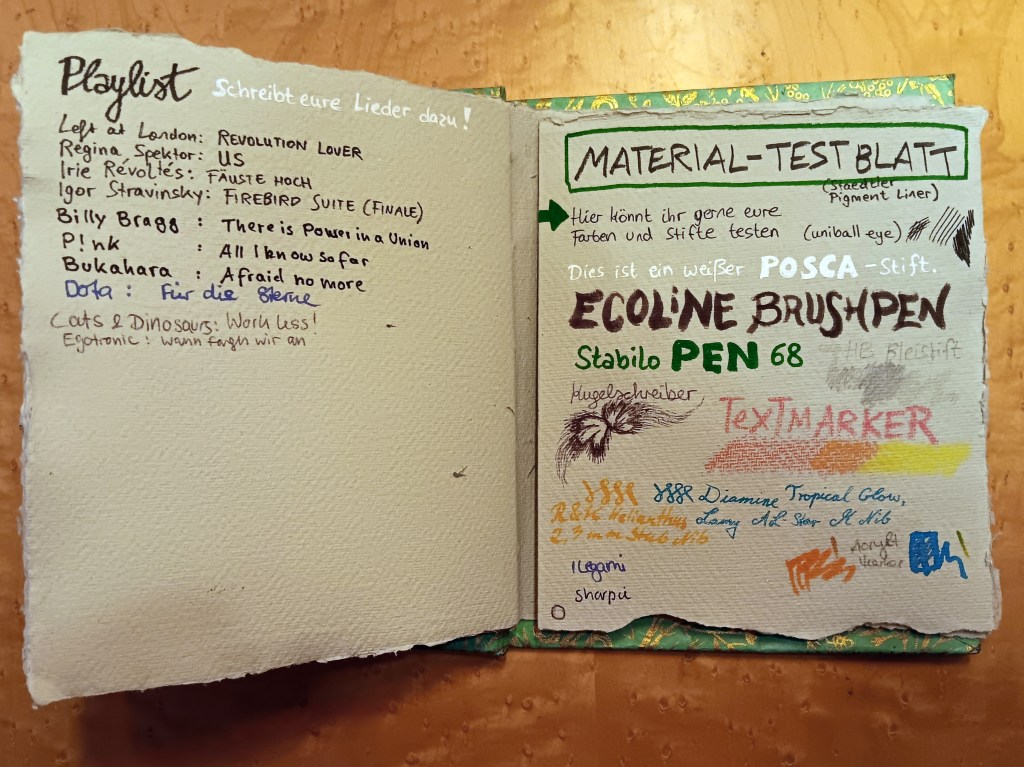 Playlist
Schreibt eure Lieder dazu!
Left at London: REVOLUTION LOVER
Regina Spektor: US
Irie Révoltés: FÄUSTE HOCH
Igor Stravinsky: FIREBIRD SUITE (FINALE)
Billy Bragg : There is Power in a Union
P!nk : All I know so far
Bukahara : Afraid no more
Dota : Für die Sterne
Cats & Dinosaurs: Work less!
Egotronic: wann fangn wir an
MATERIAL-TESTBLATT
(Staedtler
Pigment Liner)
Hier könnt ihr gerne eure
Farben und Stifte testen (uniball eye)
Dies ist ein weißer POSCA-Stift.
ECOLINE BRUSHPEN
Stabilo PEN 68
HB Bleistift
Kugelschreiber
TEXTMARKER
Diamine Tropical Glow,
Lamy AL-Star M Nib
R & K Helianthus
2,3 mm Stub Nib
Acryl
Marker
Ilegami
Sharpie